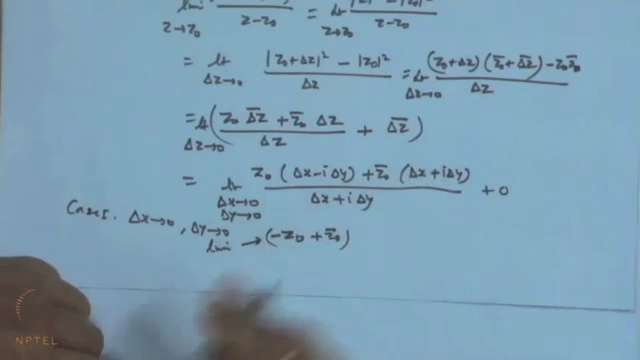 lim z→z₀ z-z₀ = lt z→z₀ z-z₀
= lt Δz→0 |z₀+Δz|² - |z₀|² / Δz = lt Δz→0 (z₀+Δz)(z̄₀+Δz̄) - z₀z̄₀ / Δz
= lt Δz→0 ( z₀ Δz̄ + z̄₀ Δz / Δz + Δz̄ )
= lt Δx→0 Δy→0 z₀ (Δx-iΔy) + z̄₀ (Δx+iΔy) / Δx+iΔy + 0
Case I. Δx→0, Δy→0
lim → (-z₀ + z̄₀)
NPTEL